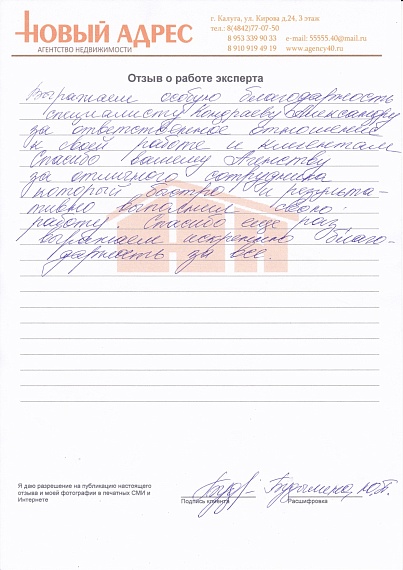 НОВЫЙ АДРЕС
АГЕНТСТВО НЕДВИЖИМОСТИ
г. Калуга, ул. Кирова д.24, 3 этаж
тел.: 8(4842)77-07-50
8 953 339 90 33 e-mail: 55555.40@mail.ru
8 910 919 49 19 www.agency40.ru
Отзыв о работе эксперта
Выражаем особую благодарность
специалисту Кондраеву Александру
за ответственное отношение
к своей работе и клиентам.
Спасибо вашему Агенству
за отличного сотрудника
который быстро и результа-
тивно выполнил свою
работу. Спасибо ещё раз,
выражаем искреннюю благо-
дарность за все.
Я даю разрешение на публикацию настоящего
отзыва и моей фотографии в печатных СМИ и
Интернете
Подпись клиента Расшифровка